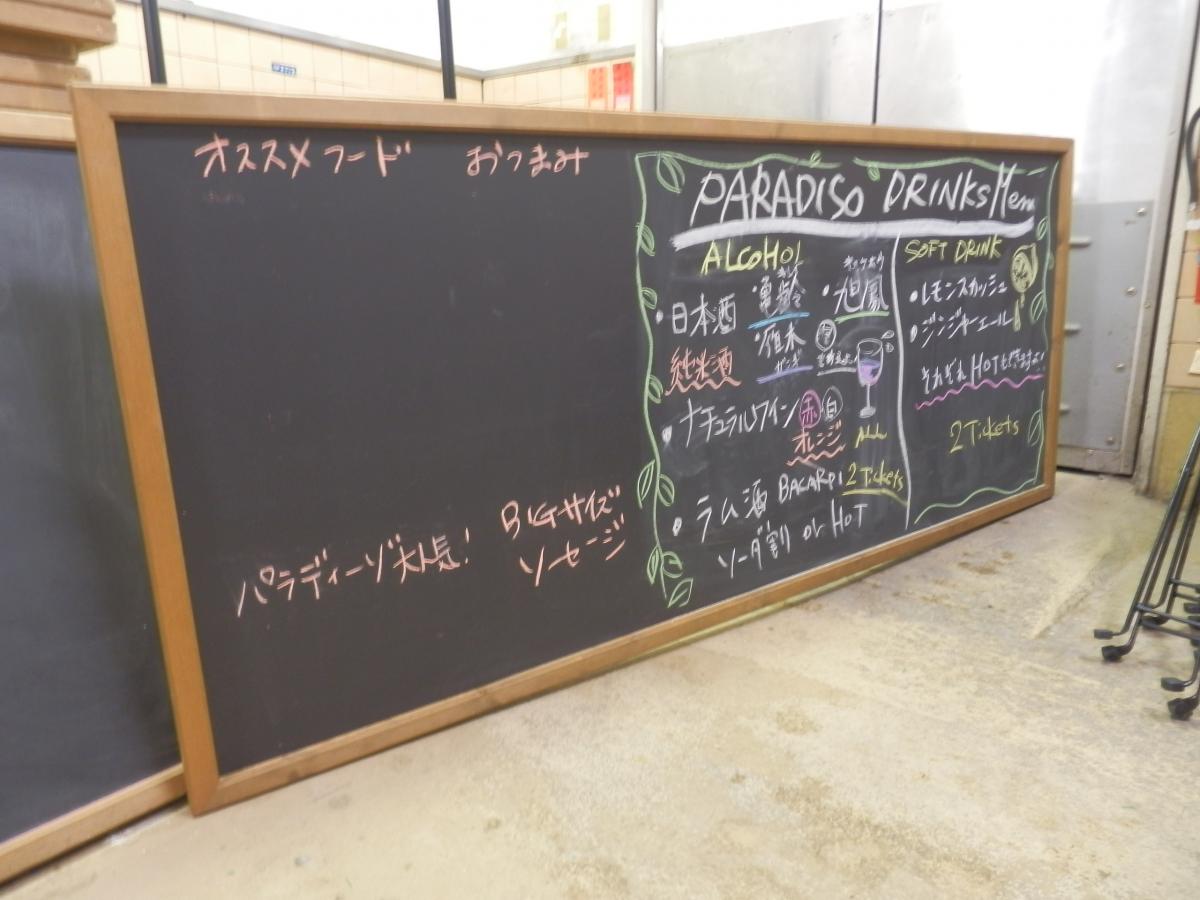 オススメフード おつまみ
パラディーゾ大人気! BIGサイズ
ソーセージ
PARADISO DRINKS Menu
ALCOHOL
・日本酒
純米酒
・亀齢
きれい
・旭鳳
きょくほう
・雁木
ガンギ
・ナチュラルワイン 赤 白
オレンジ
2 Tickets
・ラム酒 BACARDI
ソーダ割り or HOT
SOFT DRINK
・レモンスカッシュ
・ジンジャーエール
それぞれHOTもできますよ!
2 Tickets